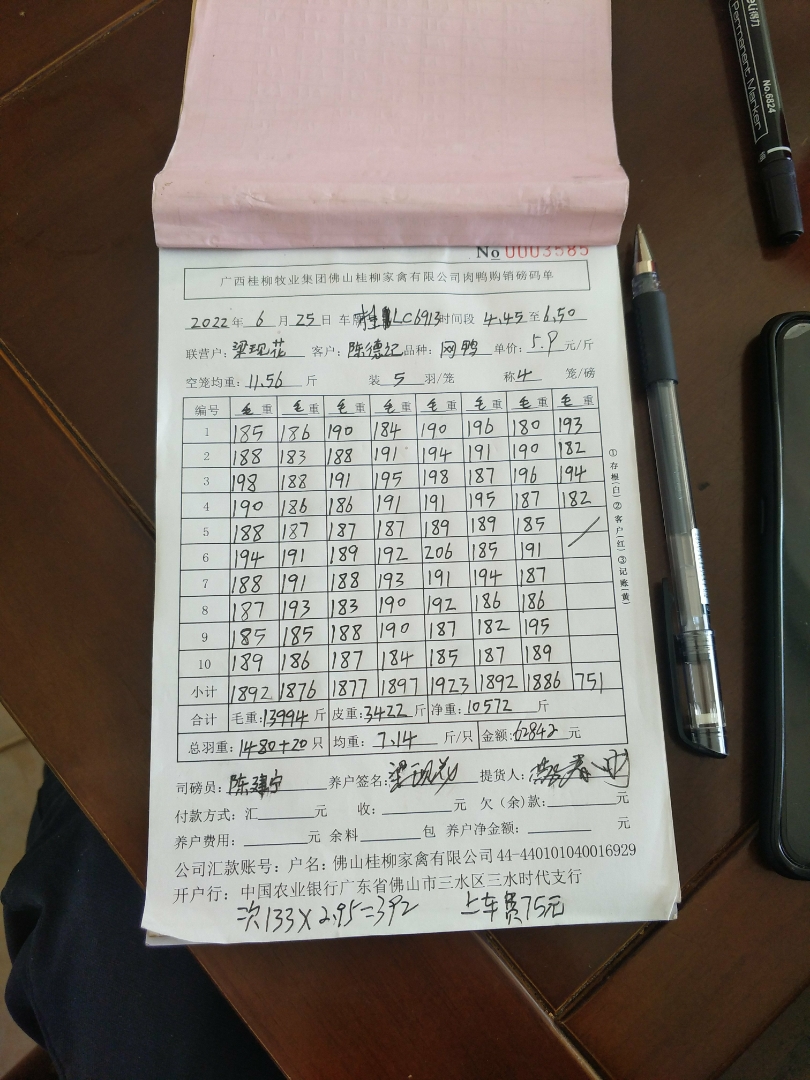 deli得力
Permanent Marker
No.6824
No 0003585
广西桂柳牧业集团佛山桂柳家禽有限公司肉鸭购销磅码单
2022年 6 月 25 日 车牌 桂LC6913 时间段 4.45 至 6.50
联营户: 梁现花 客户: 陈德记 品种: 网鸭 单价: 5.9 元/斤
空笼均重: 11.56 斤 装 5 羽/笼 称 4 笼/磅
编号 毛重 毛重 毛重 毛重 毛重 毛重 毛重 毛重
1 185 186 190 184 190 196 180 193
2 188 183 188 191 194 191 190 182
3 198 188 191 195 198 187 196 194
4 190 186 186 191 191 195 187 182
5 188 187 187 187 189 189 185 /
6 194 191 189 192 206 185 191
7 188 191 188 193 191 194 187
8 187 193 183 190 192 186 186
9 185 185 188 190 187 182 195
10 189 186 187 184 185 187 189
小计 1892 1876 1877 1897 1923 1892 1886 751
合计 毛重: 13994 斤 皮重: 3422 斤 净重: 10572 斤
总羽重: 1480+20 只 均重: 7.14 斤/只 金额: 62842 元
司磅员: 陈建宁 养户签名: 梁现花 提货人:
付款方式: 汇 元 收: 元 欠(余)款: 元
养户费用: 元 余料 包 养户净金额: 元
公司汇款账号: 户名: 佛山桂柳家禽有限公司 44-440101040016929
开户行: 中国农业银行广东省佛山市三水区三水时代支行
次133×2.95=392 上车费75元
①存根(白)②客户(红)③记账(黄)